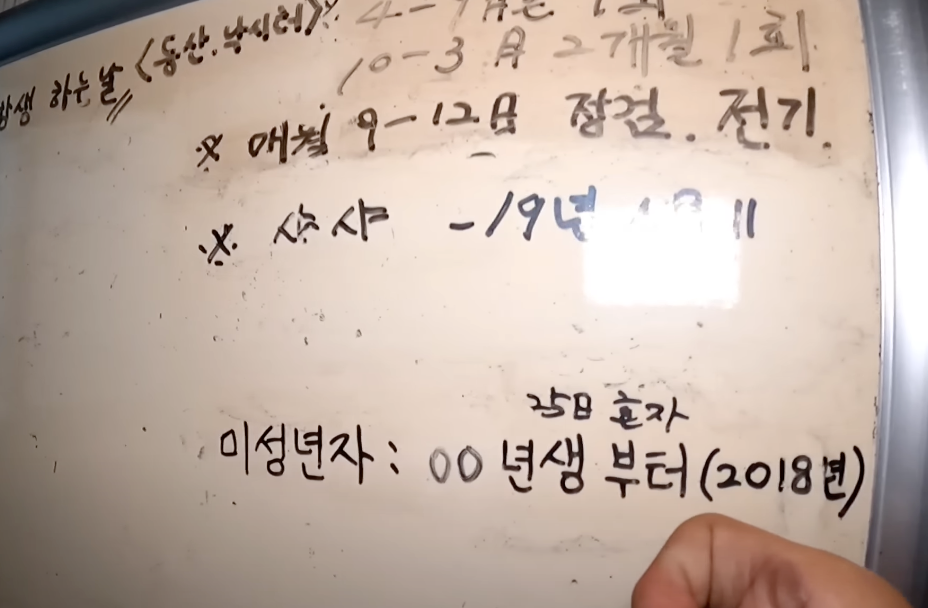 하는날 <동산.낚시터>:
10-3月 2개월 1회
※ 매월 9-12日 점검. 전기.
※ 상샤 -19년
25日 혼자
미성년자: 00년생 부터(2018년)